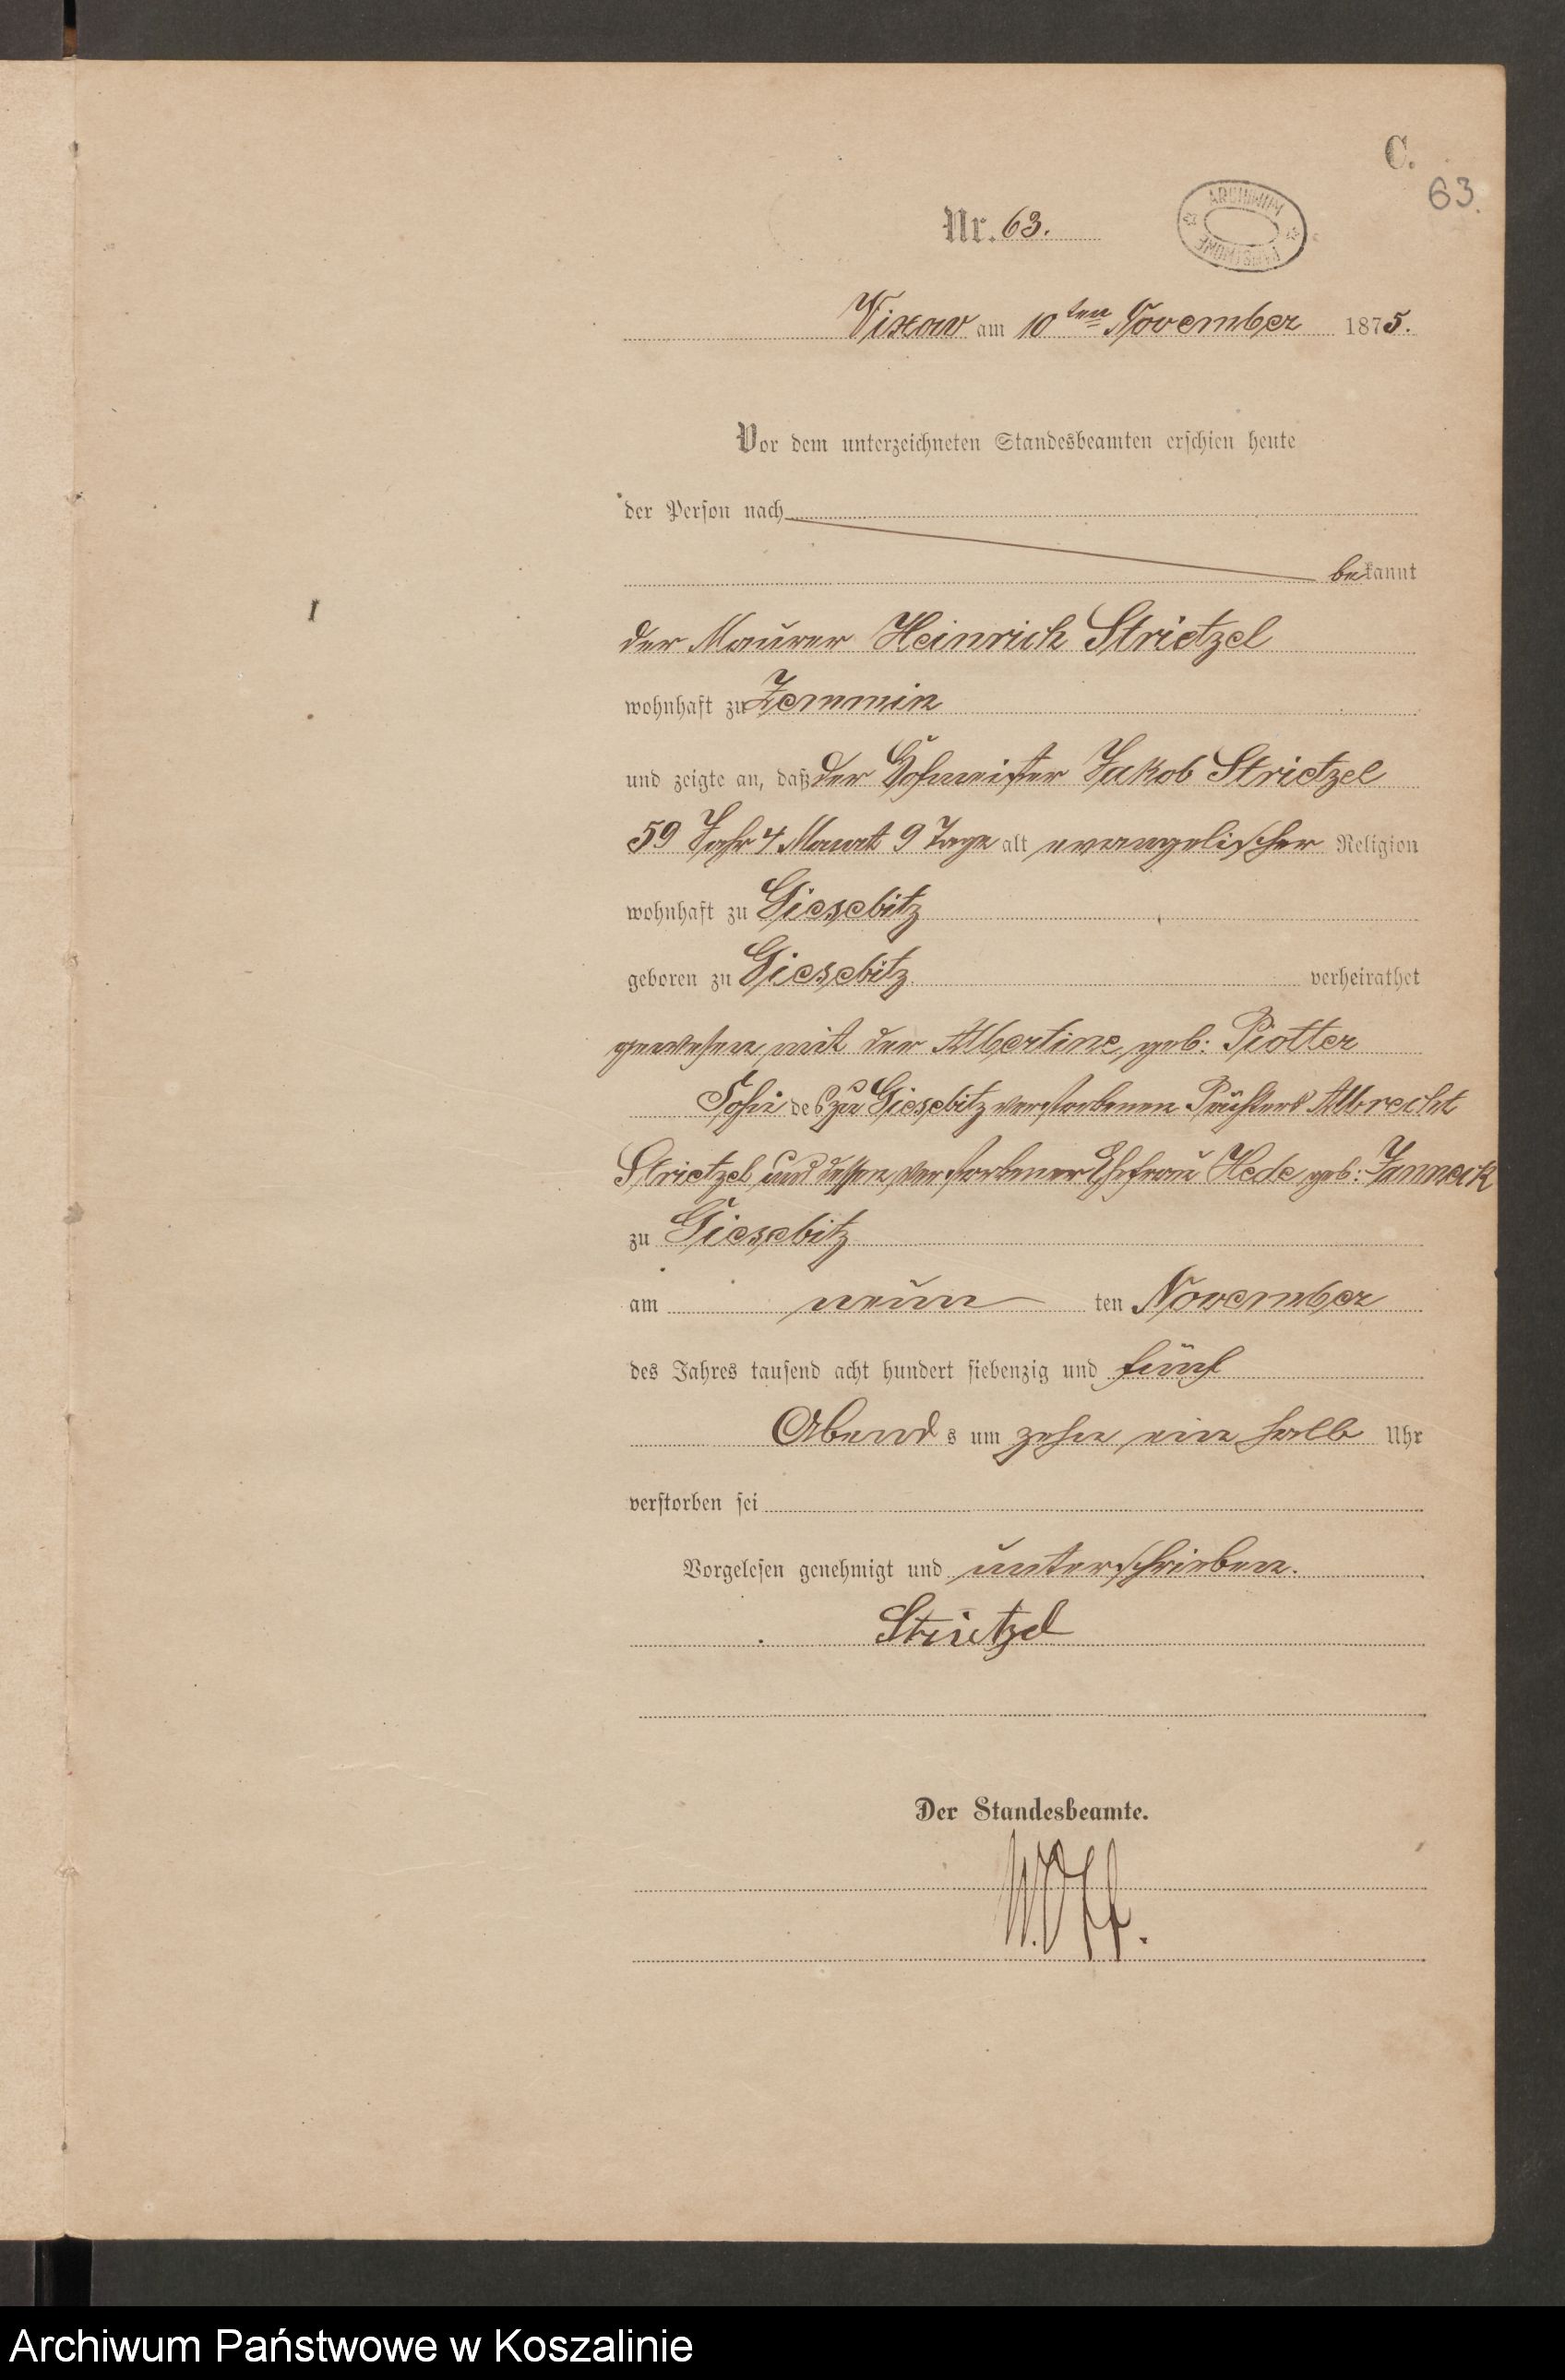 C.
63.
Nr. 63.
ARCHIWUM
PAŃSTWOWE
Vixow am 10ten November 1875.
Vor dem unterzeichneten Standesbeamten erschien heute
der Person nach
bekannt
der Maurer Heinrich Strietzel
wohnhaft zu Zemmin
und zeigte an, daß der Hofmeister Jakob Strietzel
59 Jahr 4 Monat 9 Tage alt evangelischer Religion
wohnhaft zu Giesebitz
geboren zu Giesebitz verheirathet
gewesen mit der Albertine geb: Piotter
Sohn des zu Giesebitz verstorbenen Albrecht
Strietzel und dessen verstorbener Ehefrau Hede geb: Janneck
zu Giesebitz
am neun ten November
des Jahres tausend acht hundert siebenzig und fünf
Abends um zehn ein halb Uhr
verstorben sei
Vorgelesen genehmigt und unterschrieben.
Strietzel
Der Standesbeamte.
Archiwum Państwowe w Koszalinie